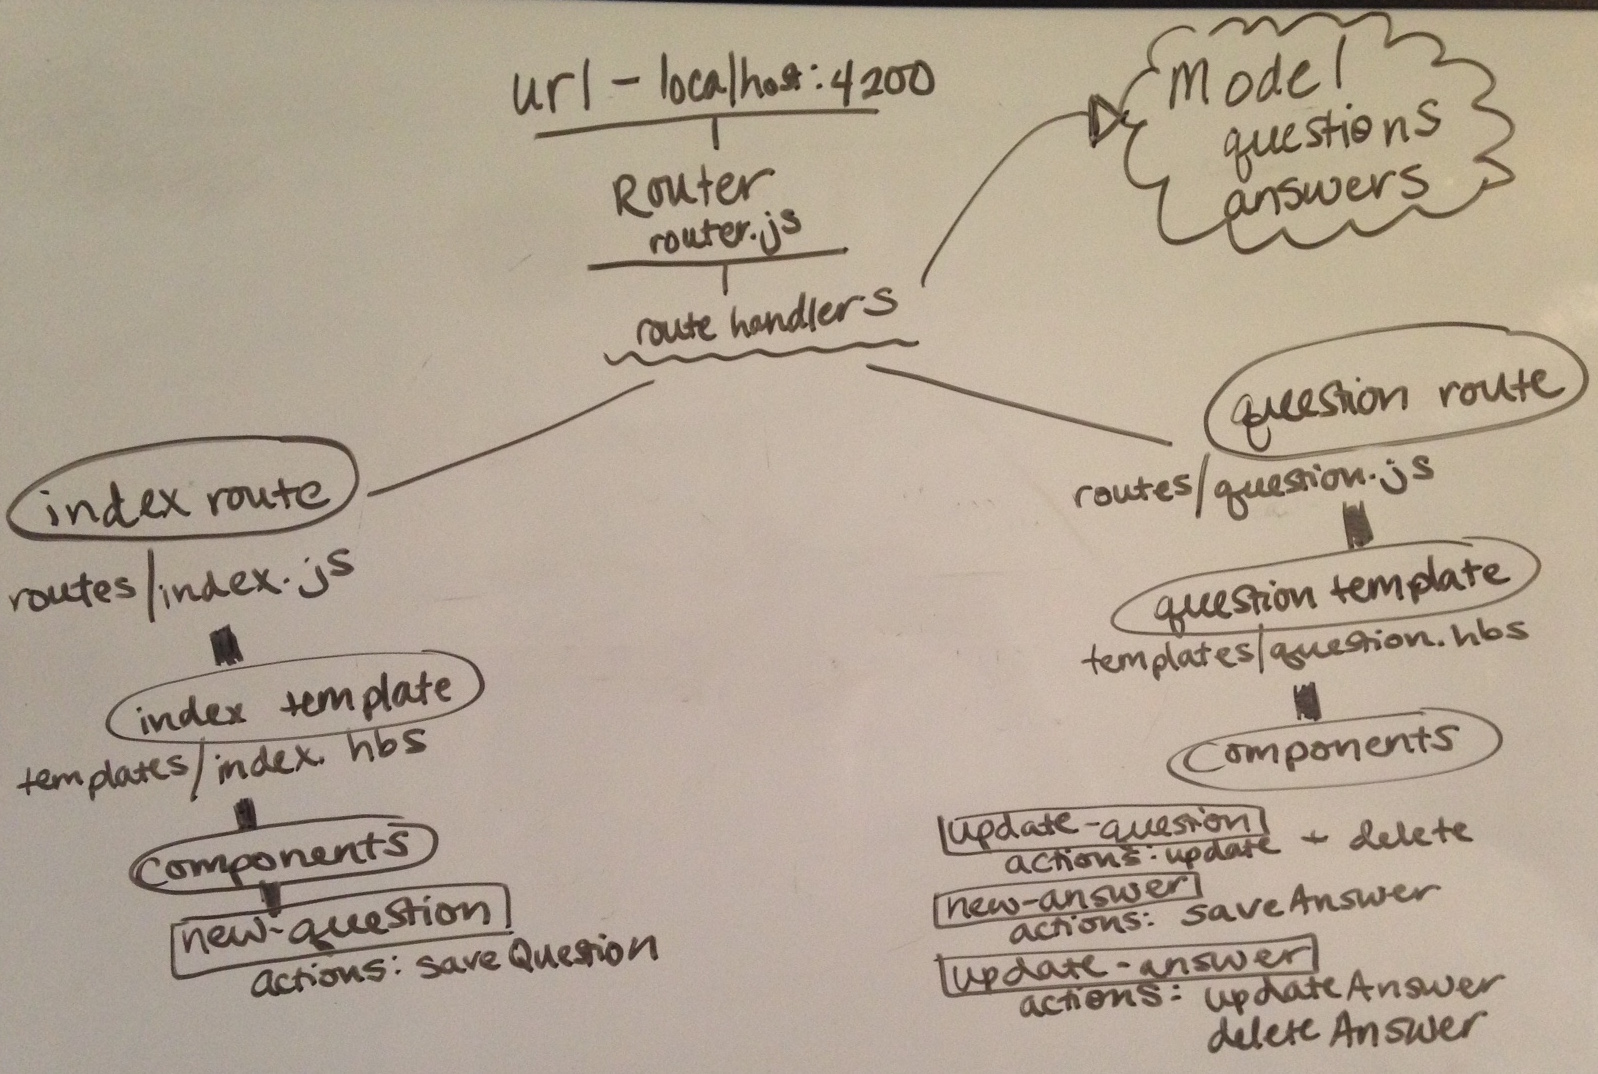 url - localhost:4200
Router
router.js
route handlers
Model
questions
answers
index route
routes/index.js
index template
templates/index.hbs
components
new-question
actions: saveQuestion
question route
routes/question.js
question template
templates/question.hbs
components
update-question
actions: update + delete
new-answer
actions: saveAnswer
update-answer
actions: updateAnswer
deleteAnswer